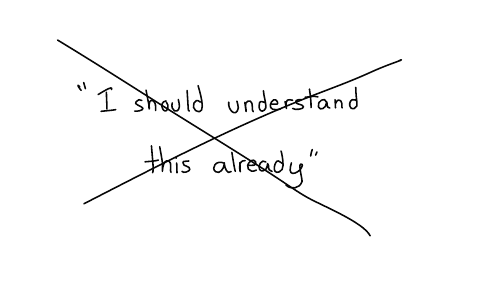 "I should understand
this already"